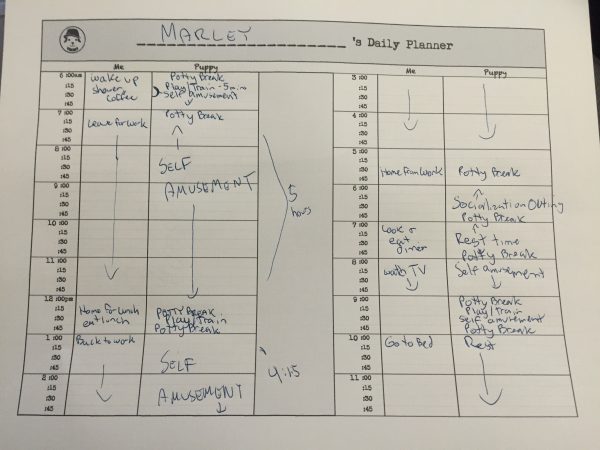 MARLEY 's Daily Planner
Me Puppy
6 :00am wake up Potty Break
:15 shower Play/Train - 5 min
:30 coffee Self Amusement
:45
7 :00 Potty Break
:15 Leave for work
:30
:45
8 :00
:15 SELF
:30
:45
9 :00 AMUSEMENT
:15
:30
:45
10 :00
:15
:30
:45
11 :00
:15
:30
:45
12 :00pm
:15 Home for lunch POTTY BREAK
:30 eat lunch Play/Train
:45 Potty Break
1 :00 Back to work
:15
:30 SELF
:45
2 :00
:15 AMUSEMENT
:30
:45
5 hours
4:15
Me Puppy
3 :00
:15
:30
:45
4 :00
:15
:30
:45
5 :00
:15 Home From Work Potty Break
:30
:45
6 :00
:15
:30 Socialization Outing
:45 Potty Break
7 :00 Cook &
:15 eat Rest time
:30 dinner
:45 Potty Break
8 :00 watch TV Self amusement
:15
:30
:45
9 :00 Potty Break
:15 Play/Train
:30 self amusement
:45 Potty Break
10 :00 Go to Bed Rest
:15
:30
:45
11 :00
:15
:30
:45